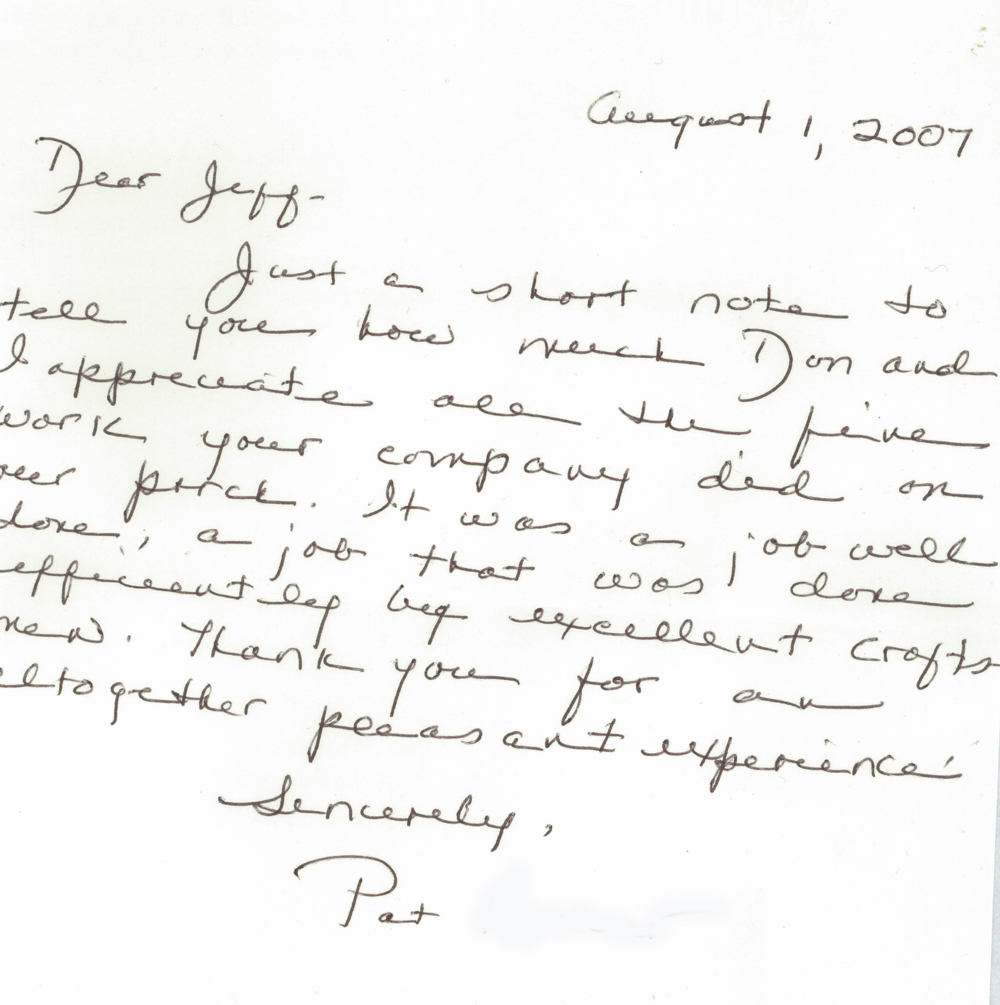 August 1, 2007
Dear Jeff-
Just a short note to
tell you how much Don and
I appreciate all the fine
work your company did on
our porch. It was a job well
done, a job that was done
efficiently by excellent crafts
men. Thank you for an
altogether pleasant experience.
Sincerely,
Pat